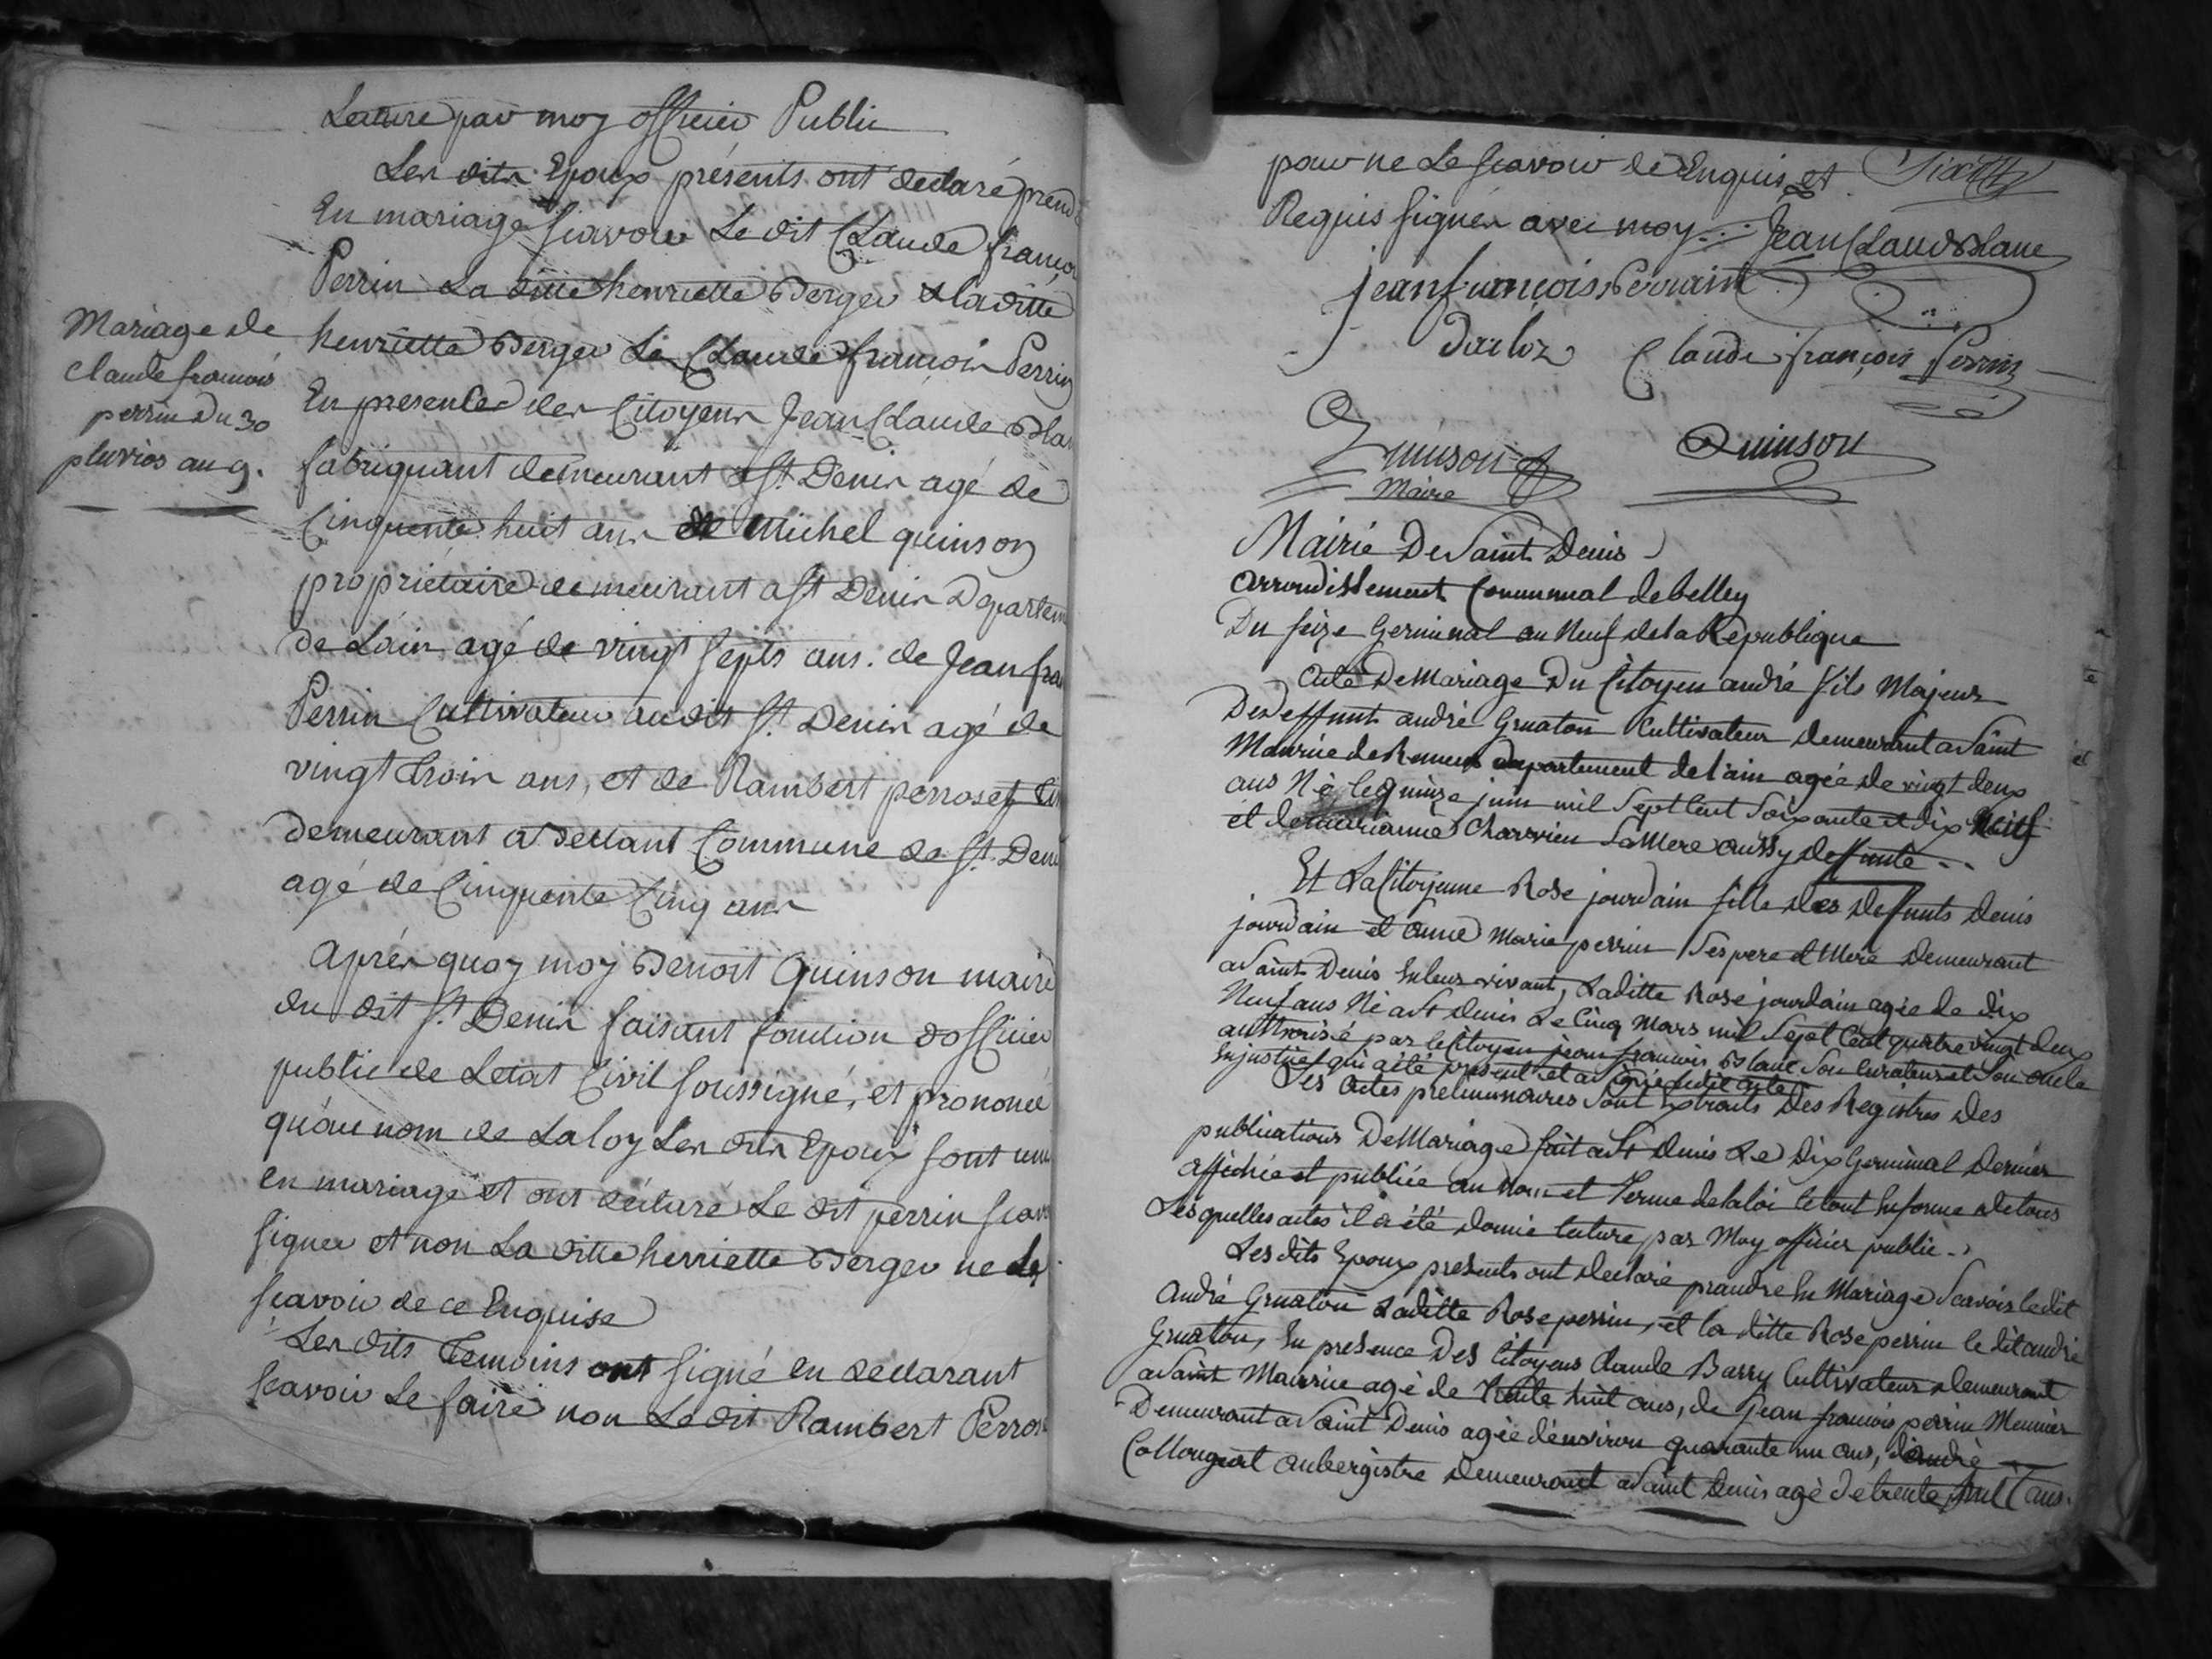 Lecture par moy officier Public
Les dits Epoux présents ont declaré prend
En mariage scavoir Le dit Claude françoi
Perrin La ditte henriette Berger & la ditte
henriette Berger Le Claude françois Perrin
En presence des Citoyens Jean Claude Blan
fabriquant demeurant a St. Denis agé de
Cinquente huit ans de Michel quinson
propriétaire demeurant a St Denis Departem
de Lain agé de vingt septs ans. de Jean fra
Perrin Cultivateur au dit St. Denis agé de
vingt trois ans, et de Rambert perroset
demeurant a Dellant Commune de St. Deni
agé de Cinquente Cinq ans
Après quoy moy Benoit Quinson maire
du dit St. Denis faisant fonction dofficier
public de Letat Civil soussigné, et prononcé
qu'au nom de La loy Les dits Epoux sont uni
en mariage et ont déclaré Le dit perrin scavo
signer et non La ditte henriette Berger ne Le
scavoir de ce Enquise
Les dits temoins ont signé en declarant
scavoir Le faire non Le dit Rambert Perros
Mariage de
Claude francois
perrin du 30
pluvios an 9.
pour ne Le scavoir de Enquis et
Requis signer avec moy. Jean Claude Blanc
jean françois Perrain
Darloz Claude françois Perrin
Quinson Quinson
Maire
Mairie De Saint Denis
arrondissement Communal de belley
Du seize Germinal an Neuf de la Republique
acte De Mariage Du Citoyen andré fils Majeur
De deffunt andré Gruaton Cultivateur demeurant a Saint
Maurice de Remens departement de l'ain agée de vingt deux
ans Né le quinze juin mil sept Cent Soixante et dix Neuf
et de marianne Charvieu Sa Mere aussy deffunte
Et La Citoyenne Rose jourdain fille des deffunts Denis
jourdain et anne marie perrin Ses pere et Mere Demeurant
a Saint Denis En leur vivant, Laditte Rose jourdain agée de dix
Neuf ans Né a St denis Le Cinq Mars mil Sept Cent quatre vingt deux
authorisé par le Citoyen jean francois Blanc Son Curateur et Son oncle
En justice qui a été présent et a signé ledit acte
Les actes preliminaires Sont Extraits Des Registres Des
publications De Mariage fait a St denis Le Dix Germinal Dernier
affichée et publiée au nom et Terme de la loi le tout En forme de tous
Les quelles actes il a été donné lecture par Moy officier public
Les dits Epoux presents ont declaré prandre En Mariage Scavoir le dit
André Gruaton Laditte Rose perrin, et la ditte Rose perrin le dit andré
Gruaton, En presence Des Citoyens Claude Barry Cultivateur demeurant
a Saint Maurice agé de trente huit ans, de jean francois perrin Meunier
Demeurant a Saint Denis agée d'environ quarante un ans, d'andré
Collonguet aubergistre demeurant a Saint denis agé de trente huit ans.